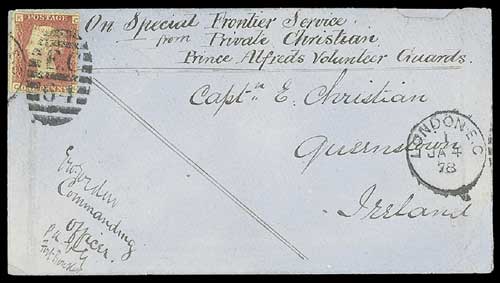 On Special Frontier Service
from Private Christian
Prince Alfreds Volunteer Guards.
Captn E. Christian
Queenstown
Ireland
Commanding
Officer.
POSTAGE
LONDON E.C
1
JA 4
78